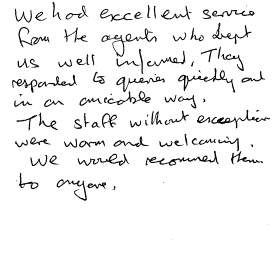 We had excellent service
from the agents who kept
us well informed, They
responded to queries quickly and
in an amicable way.
The staff without exception
were warm and welcoming.
We would recommend them
to anyone.